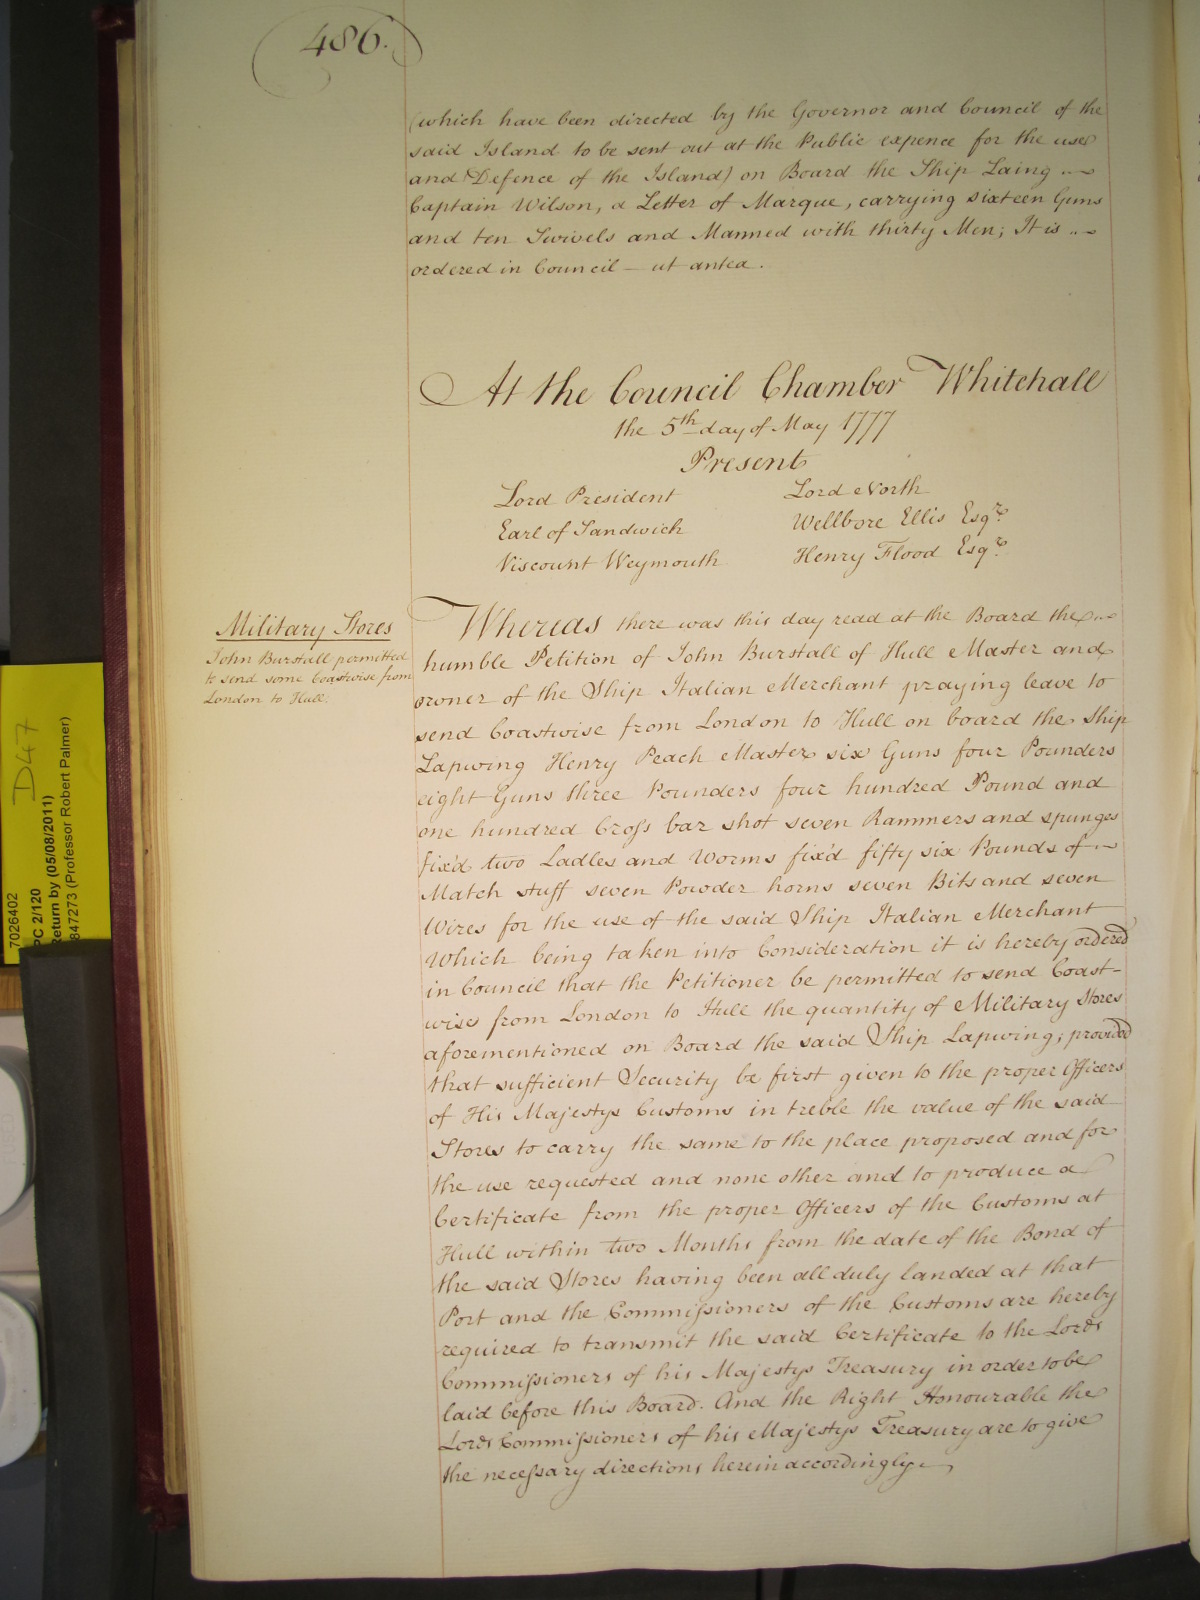 486.
(which have been directed by the Governor and Council of the
said Island to be sent out at the Public expence for the use
and Defence of the Island) on Board the Ship Laing
Captain Wilson, a Letter of Marque, carrying sixteen Guns
and ten Swivels and Manned with thirty Men; It is
ordered in Council — ut antea.
At the Council Chamber Whitehall
the 5th day of May 1777
Present
Lord President Lord North
Earl of Sandwich Wellbore Ellis Esqr.
Viscount Weymouth Henry Flood Esqr.
Military Stores
John Burstall permitted
to send some Coastwise from
London to Hull.
Whereas there was this day read at the Board the
humble Petition of John Burstall of Hull Master and
owner of the Ship Italian Merchant praying leave to
send Coastwise from London to Hull on board the Ship
Lapwing Henry Peach Master six Guns four Pounders
eight Guns three Pounders four hundred Pound and
one hundred Cross bar shot seven Rammers and spunges
fix'd two Ladles and Worms fix'd fifty six Pounds of
Match stuff seven Powder horns seven Bits and seven
Wires for the use of the said Ship Italian Merchant
Which being taken into Consideration it is hereby ordered
in Council that the Petitioner be permitted to send Coast-
wise from London to Hull the quantity of Military Stores
aforementioned on Board the said Ship Lapwing; provided
that sufficient Security be first given to the proper Officers
of His Majestys Customs in treble the value of the said
Stores to carry the same to the place proposed and for
the use requested and none other and to produce a
Certificate from the proper Officers of the Customs at
Hull within two Months from the date of the Bond of
the said Stores having been all duly landed at that
Port and the Commissioners of the Customs are hereby
required to transmit the said Certificate to the Lords
Commissioners of his Majestys Treasury in order to be
laid before this Board. And the Right Honourable the
Lords Commissioners of his Majestys Treasury are to give
the necessary directions herein accordingly.
D47
7026402
PC 2/120
Return by (05/08/2011)
847273 (Professor Robert Palmer)